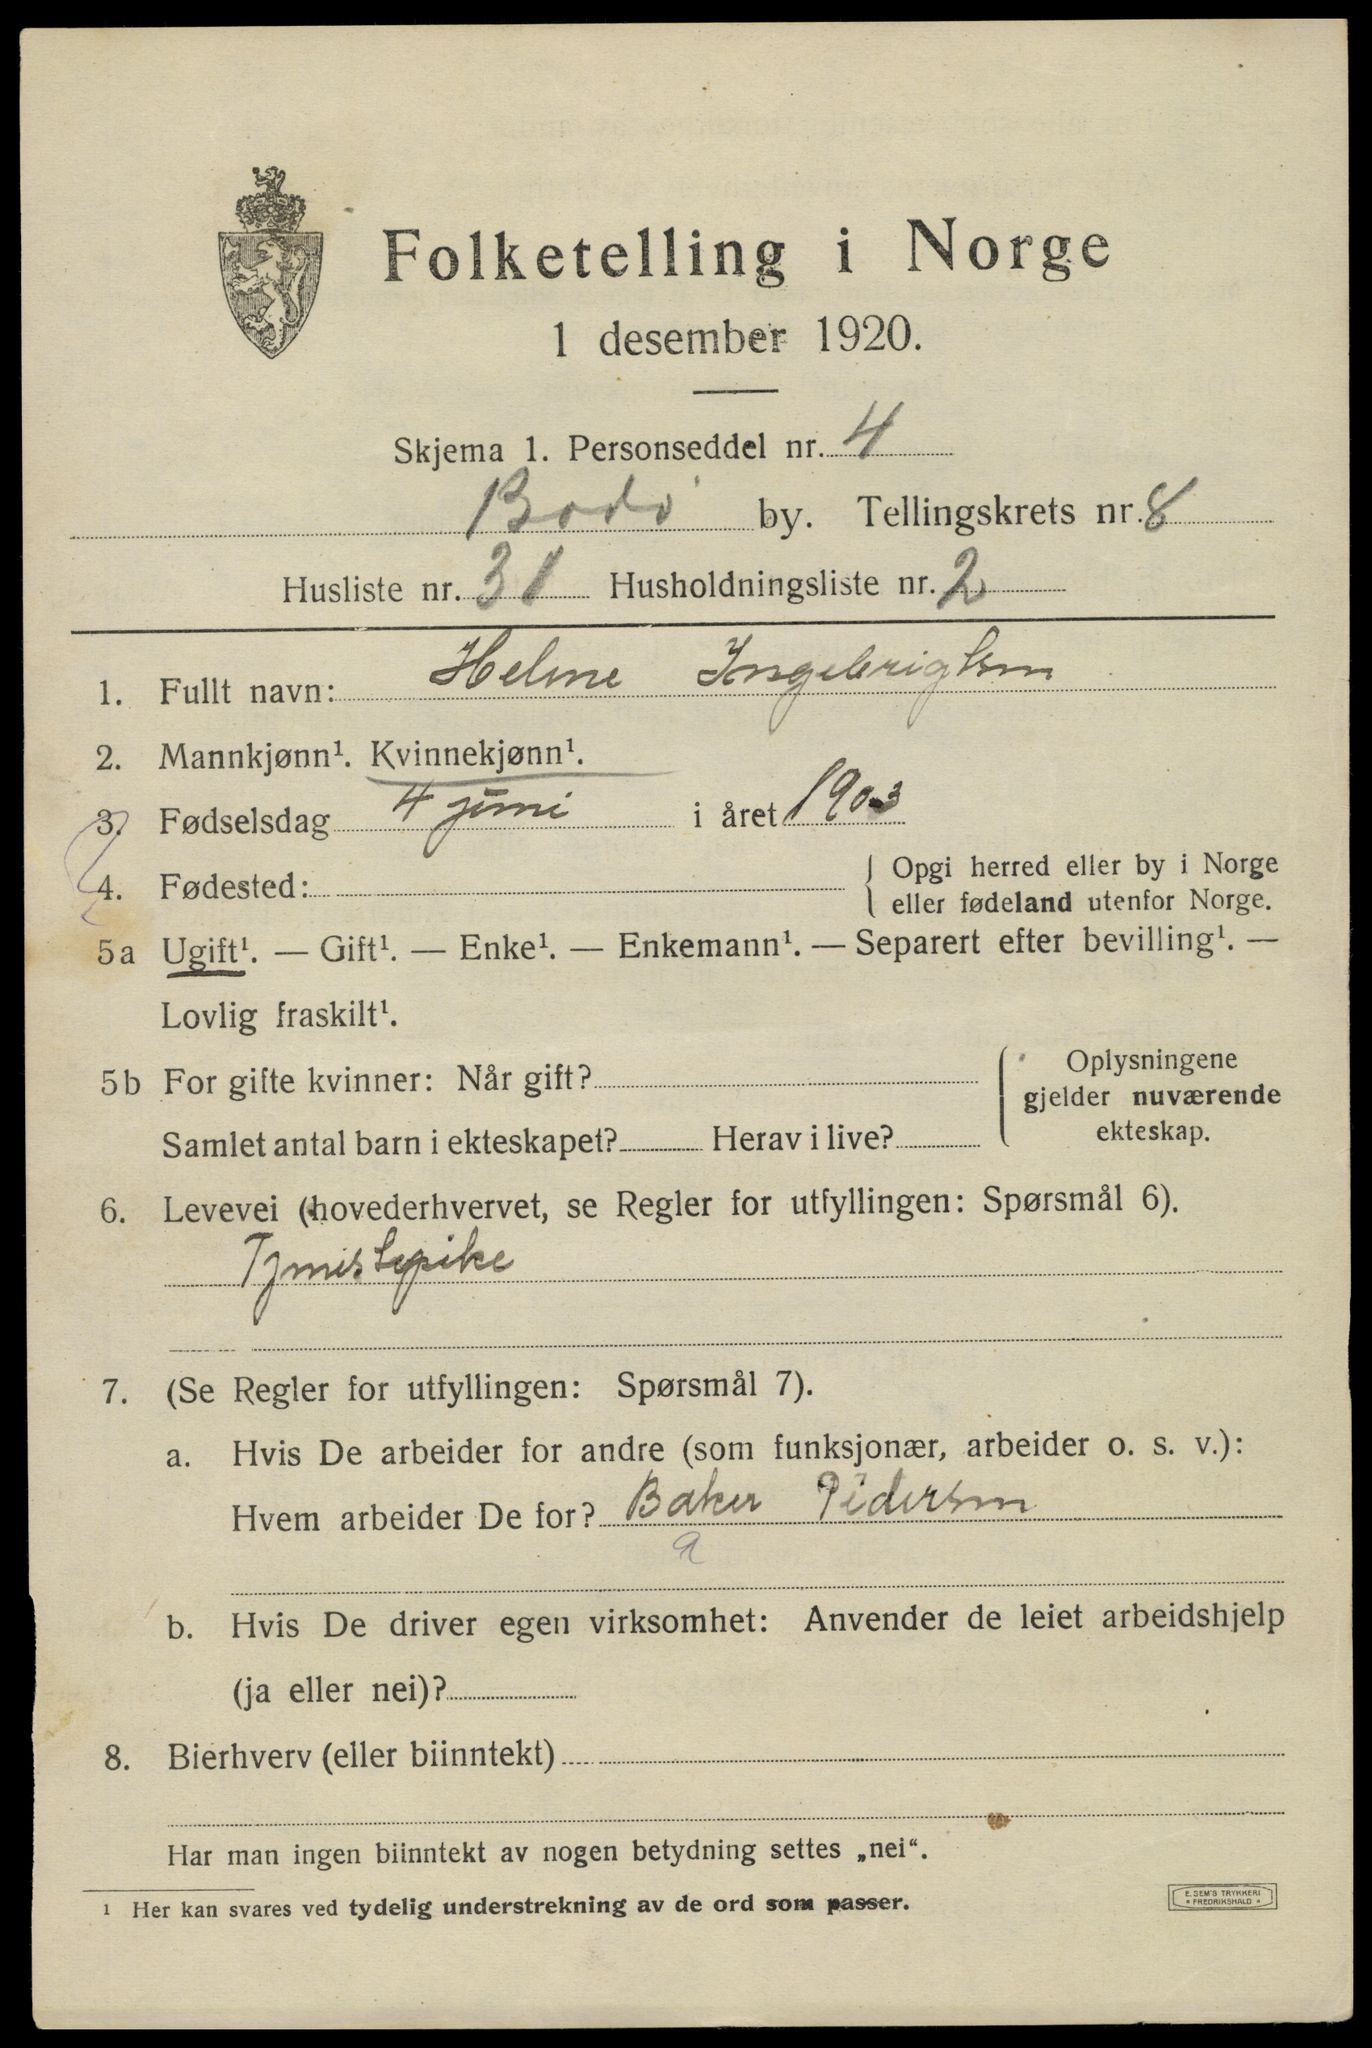 Folketelling i Norge
1 desember 1920.
Skjema 1. Personseddel nr. 4
Bodø by. Tellingskrets nr. 8
Husliste nr. 31 Husholdningsliste nr. 2
1. Fullt navn: Heline Ingebrigtsen
2. Mannkjønn¹. Kvinnekjønn¹.
3. Fødselsdag 4 juni i året 1903
4. Fødested: { Opgi herred eller by i Norge
eller fødeland utenfor Norge.
5a Ugift¹. — Gift¹. — Enke¹. — Enkemann¹. — Separert efter bevilling¹. —
Lovlig fraskilt¹.
5b For gifte kvinner: Når gift?
Samlet antal barn i ekteskapet? Herav i live?
{ Oplysningene
gjelder nuværende
ekteskap.
6. Levevei (hovederhvervet, se Regler for utfyllingen: Spørsmål 6).
Tjenistepike
7. (Se Regler for utfyllingen: Spørsmål 7).
a. Hvis De arbeider for andre (som funksjonær, arbeider o. s. v.):
Hvem arbeider De for? Baker Pedersen
a
b. Hvis De driver egen virksomhet: Anvender de leiet arbeidshjelp
(ja eller nei)?
8. Bierhverv (eller biinntekt)
Har man ingen biinntekt av nogen betydning settes „nei“.
¹ Her kan svares ved tydelig understrekning av de ord som passer.
E. SEM'S TRYKKERI
FREDRIKSHALD